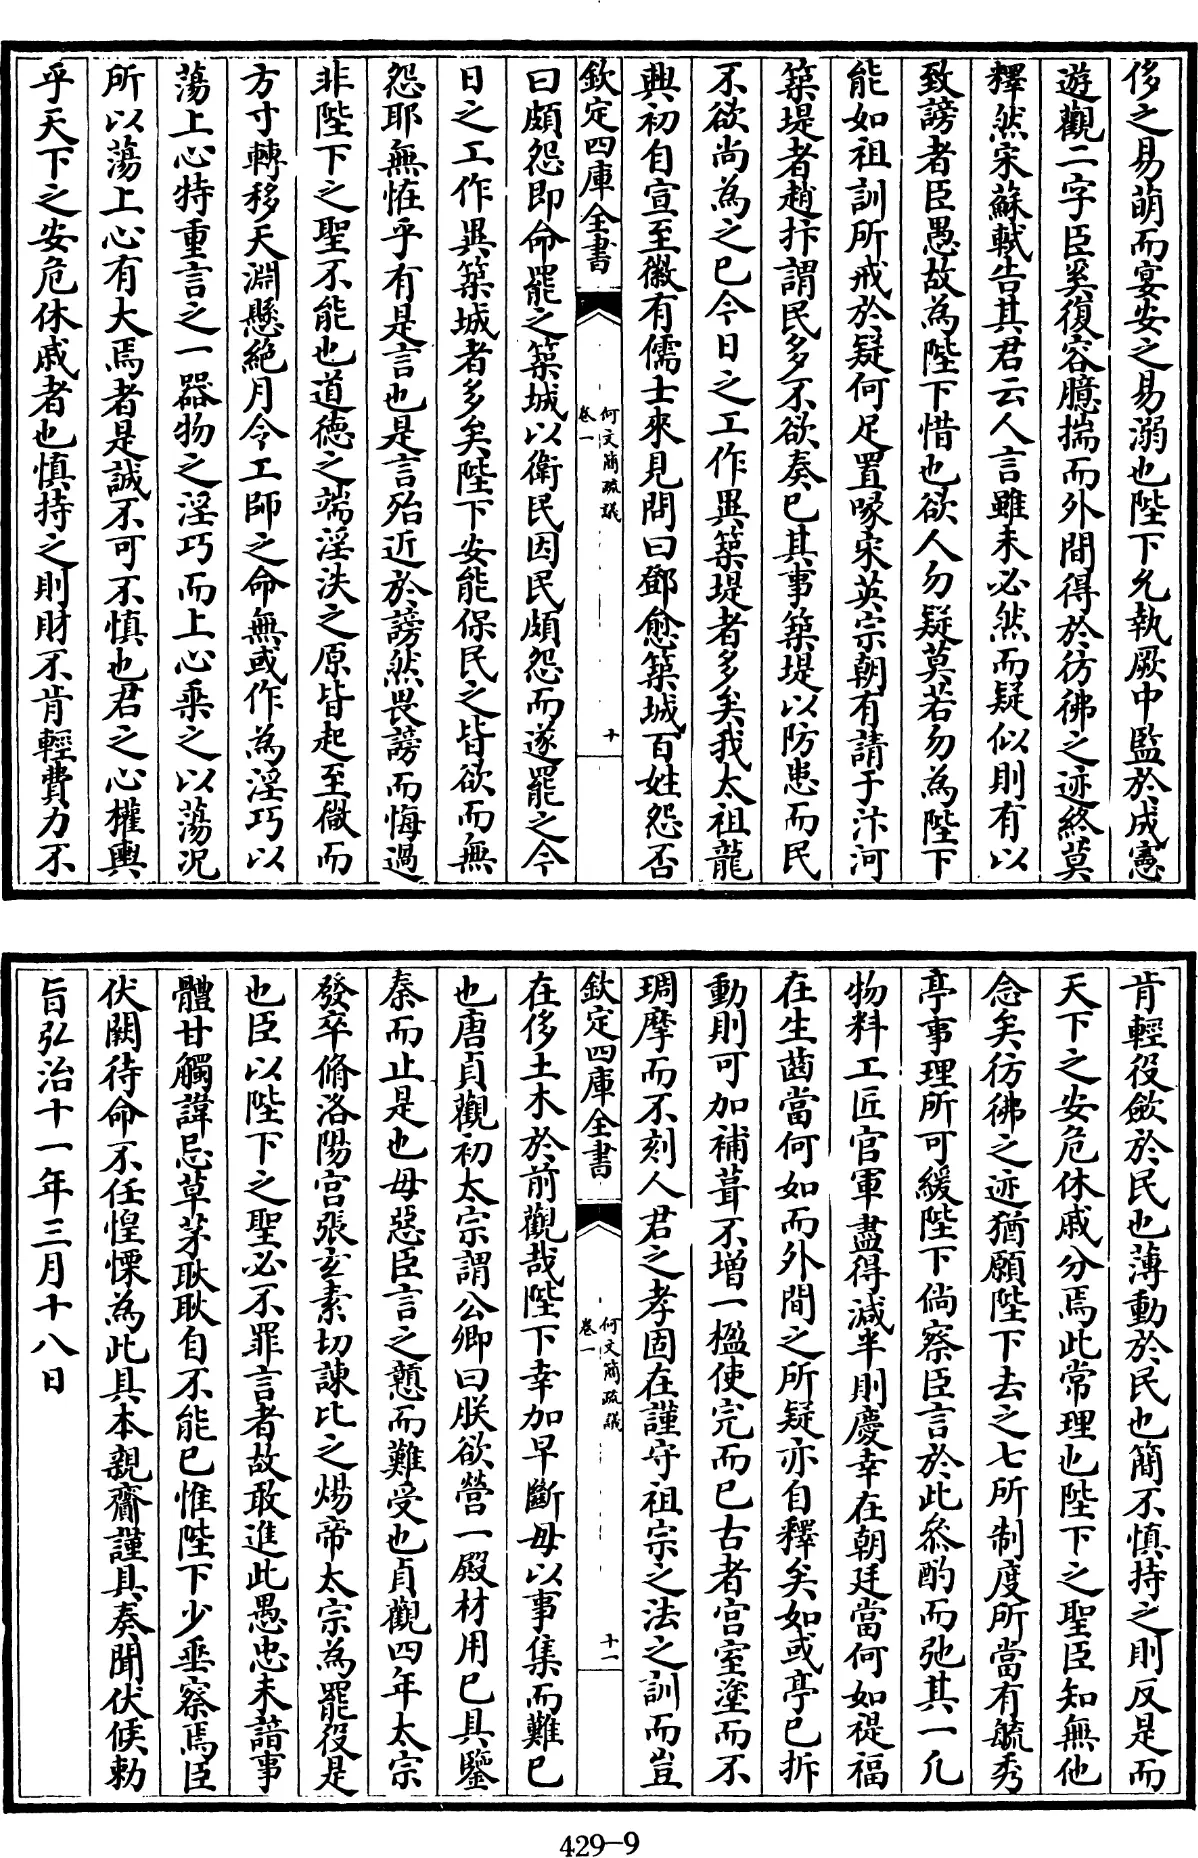 侈之易萌而宴安之易溺也陛下允執厥中監於成憲
遊觀二字臣奚復容臆揣而外間得於彷彿之迹終莫
釋然宋蘇軾告其君云人言雖未必然而疑似則有以
致謗者臣愚故為陛下惜也欲人勿疑莫若勿為陛下
能如祖訓所戒於疑何足置喙宋英宗朝有請于汴河
築堤者趙抃謂民多不欲奏已其事築堤以防患而民
不欲尚為之已今日之工作異築堤者多矣我太祖龍
興初自宣至徽有儒士來見問曰鄧愈築城百姓怨否
欽定四庫全書
何文簡疏議
卷一
十
曰頗怨即命罷之築城以衛民因民頗怨而遂罷之今
日之工作異築城者多矣陛下安能保民之皆欲而無
怨耶無恠乎有是言也是言殆近於謗然畏謗而悔過
非陛下之聖不能也道德之端淫泆之原皆起至微而
方寸轉移天淵懸絶月令工師之命無或作為淫巧以
蕩上心特重言之一器物之淫巧而上心乘之以蕩况
所以蕩上心有大焉者是誠不可不慎也君之心權輿
乎天下之安危休戚者也慎持之則財不肯輕費力不
肯輕役斂於民也薄動於民也簡不慎持之則反是而
天下之安危休戚分焉此常理也陛下之聖臣知無他
念矣彷彿之迹猶願陛下去之七所制度所當有毓秀
亭事理所可緩陛下倘察臣言於此叅酌而弛其一凡
物料工匠官軍盡得減半則慶幸在朝廷當何如禔福
在生齒當何如而外間之所疑亦自釋矣如或亭已拆
動則可加補葺不增一楹使完而已古者宫室塗而不
琱摩而不刻人君之孝固在謹守祖宗之法之訓而豈
欽定四庫全書
何文簡疏議
卷一
十一
在侈土木於前觀哉陛下幸加早斷毋以事集而難已
也唐貞觀初太宗謂公卿曰朕欲營一殿材用已具鑒
秦而止是也毋惡臣言之戇而難受也貞觀四年太宗
發卒脩洛陽宫張玄素切諫比之煬帝太宗為罷役是
也臣以陛下之聖必不罪言者故敢進此愚忠未諳事
體甘觸諱忌草茅耿耿自不能已惟陛下少垂察焉臣
伏闕待命不任惶慄為此具本親齎謹具奏聞伏候勅
旨弘治十一年三月十八日
429-9